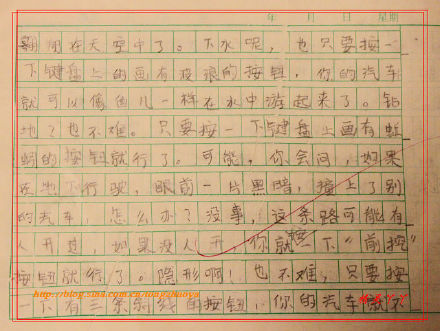 年 月 日 星期
翱翔在天空中了。下水呢，也只要按一
下键盘上的画有波浪的按钮，你的汽车
就可以像鱼儿一样在水中游起来了。钻
地？也不难。只要按一下键盘上画有蚯
蚓的按钮就行了。可能，你会问，如果
在地下行驶，眼前一片黑暗，撞上了别
的汽车，怎么办？没事，这条路可能有
人开过，如果没人开，你就按一下“前挖”
按钮就行了。隐形啊！也不难，只要按
一下有三条射线的按钮，你的汽车就不
http://blog.sina.com.cn/tongzhaoya